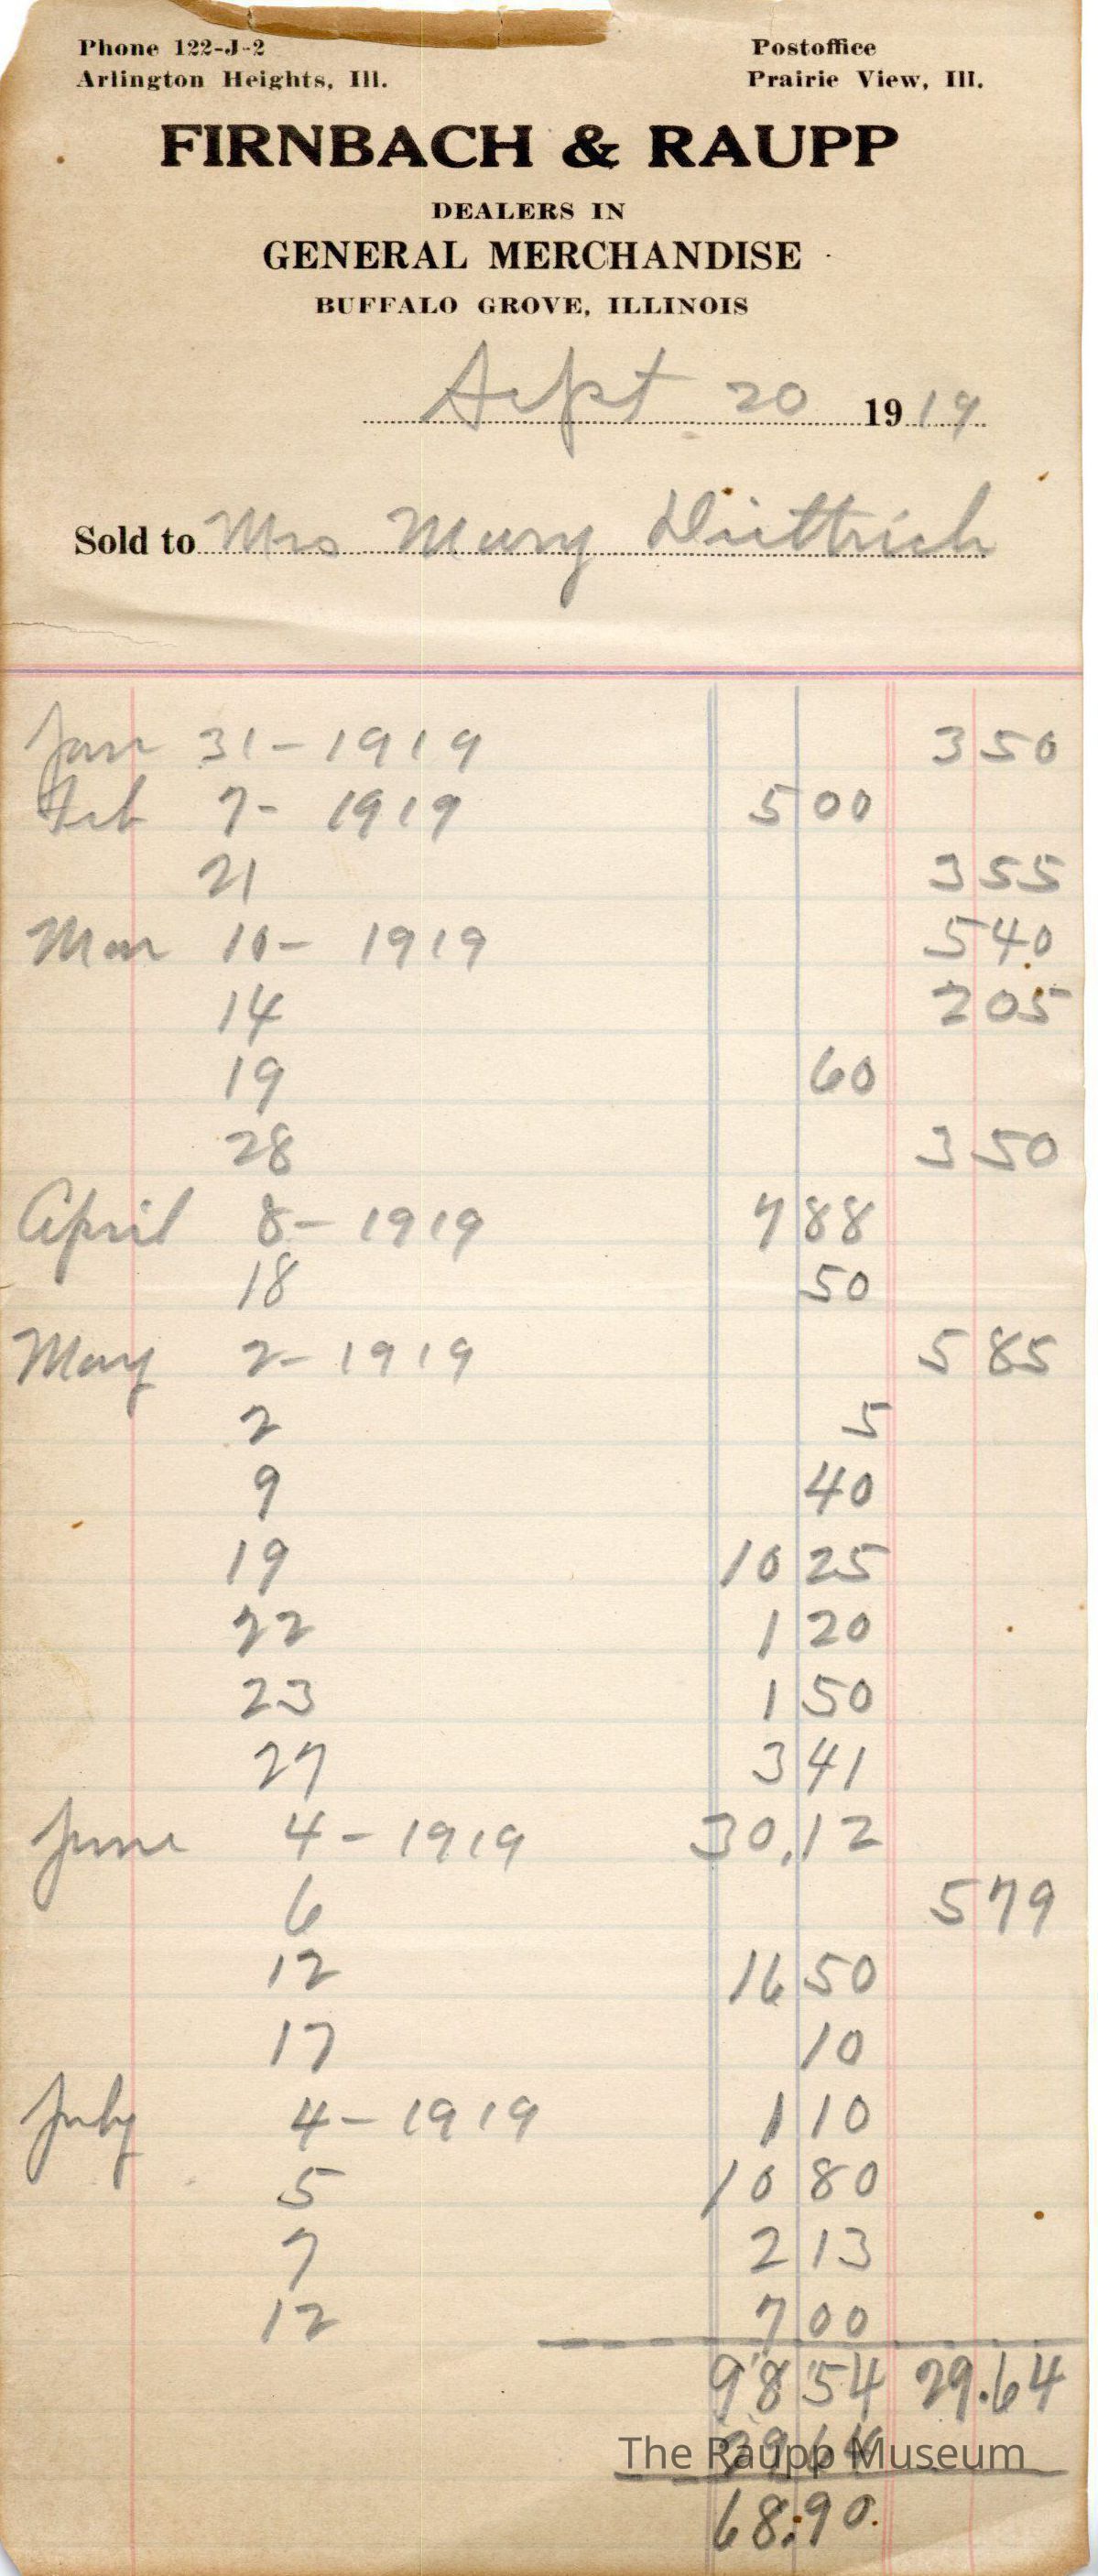 Phone 122-J-2
Arlington Heights, Ill.
Postoffice
Prairie View, Ill.
FIRNBACH & RAUPP
DEALERS IN
GENERAL MERCHANDISE
BUFFALO GROVE, ILLINOIS
Sept 20 1919
Sold to Mrs Mary Diettrich
Jan 31-1919 3 50
Feb 7-1919 5 00
21 3 55
Mar 10-1919 5 40
14 2 05
19 60
28 3 50
April 8-1919 7 88
18 50
May 2-1919 5 85
2 5
9 40
19 10 25
22 1 20
23 1 50
27 3 41
June 4-1919 30.12
6 5 79
12 16 50
17 10
July 4-1919 1 10
5 10 80
7 2 13
12 7 00
98 54 29.64
29 64
The Raupp Museum
68.90.